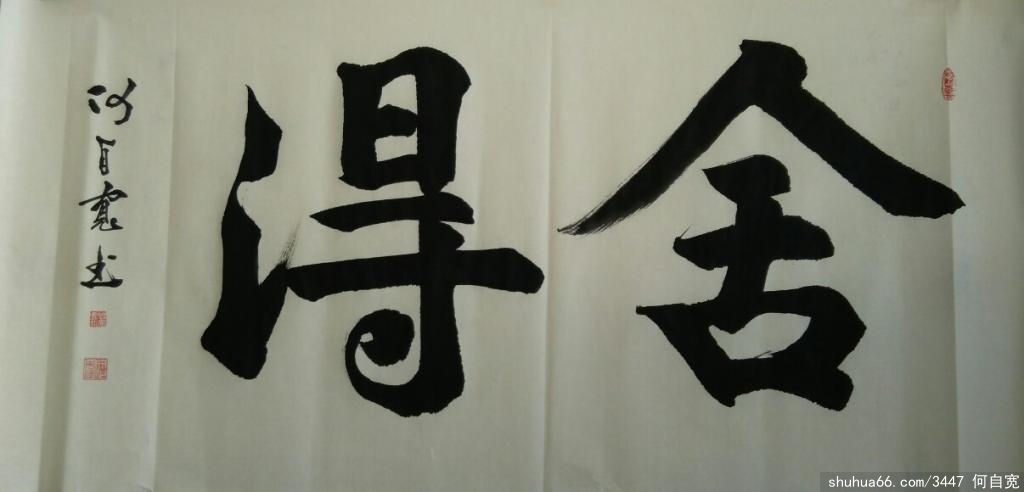 舍得
何自寬书
shuhua66.com/3447 何自宽